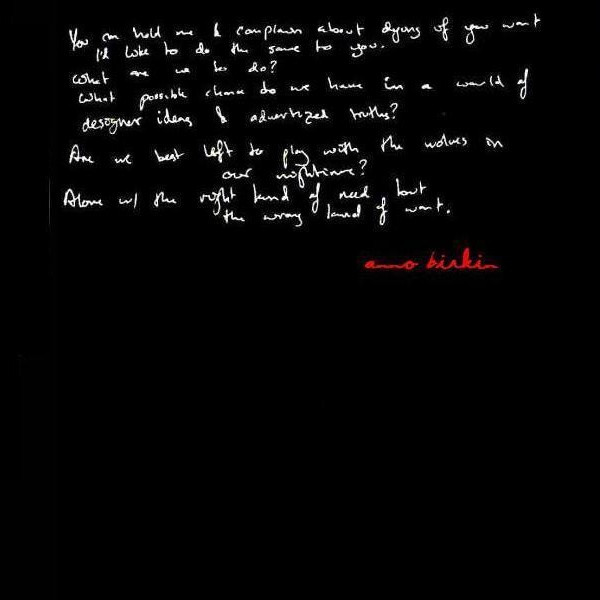 You can hold me & complain about dying if you want
I'd like to do the same to you.
What are we to do?
What possible chance do we have in a world of
designer ideas & advertized truths?
Are we best left to play with the wolves in
our nightime?
Alone w/ the right kind of need, but
the wrong kind of want.
anno birkin